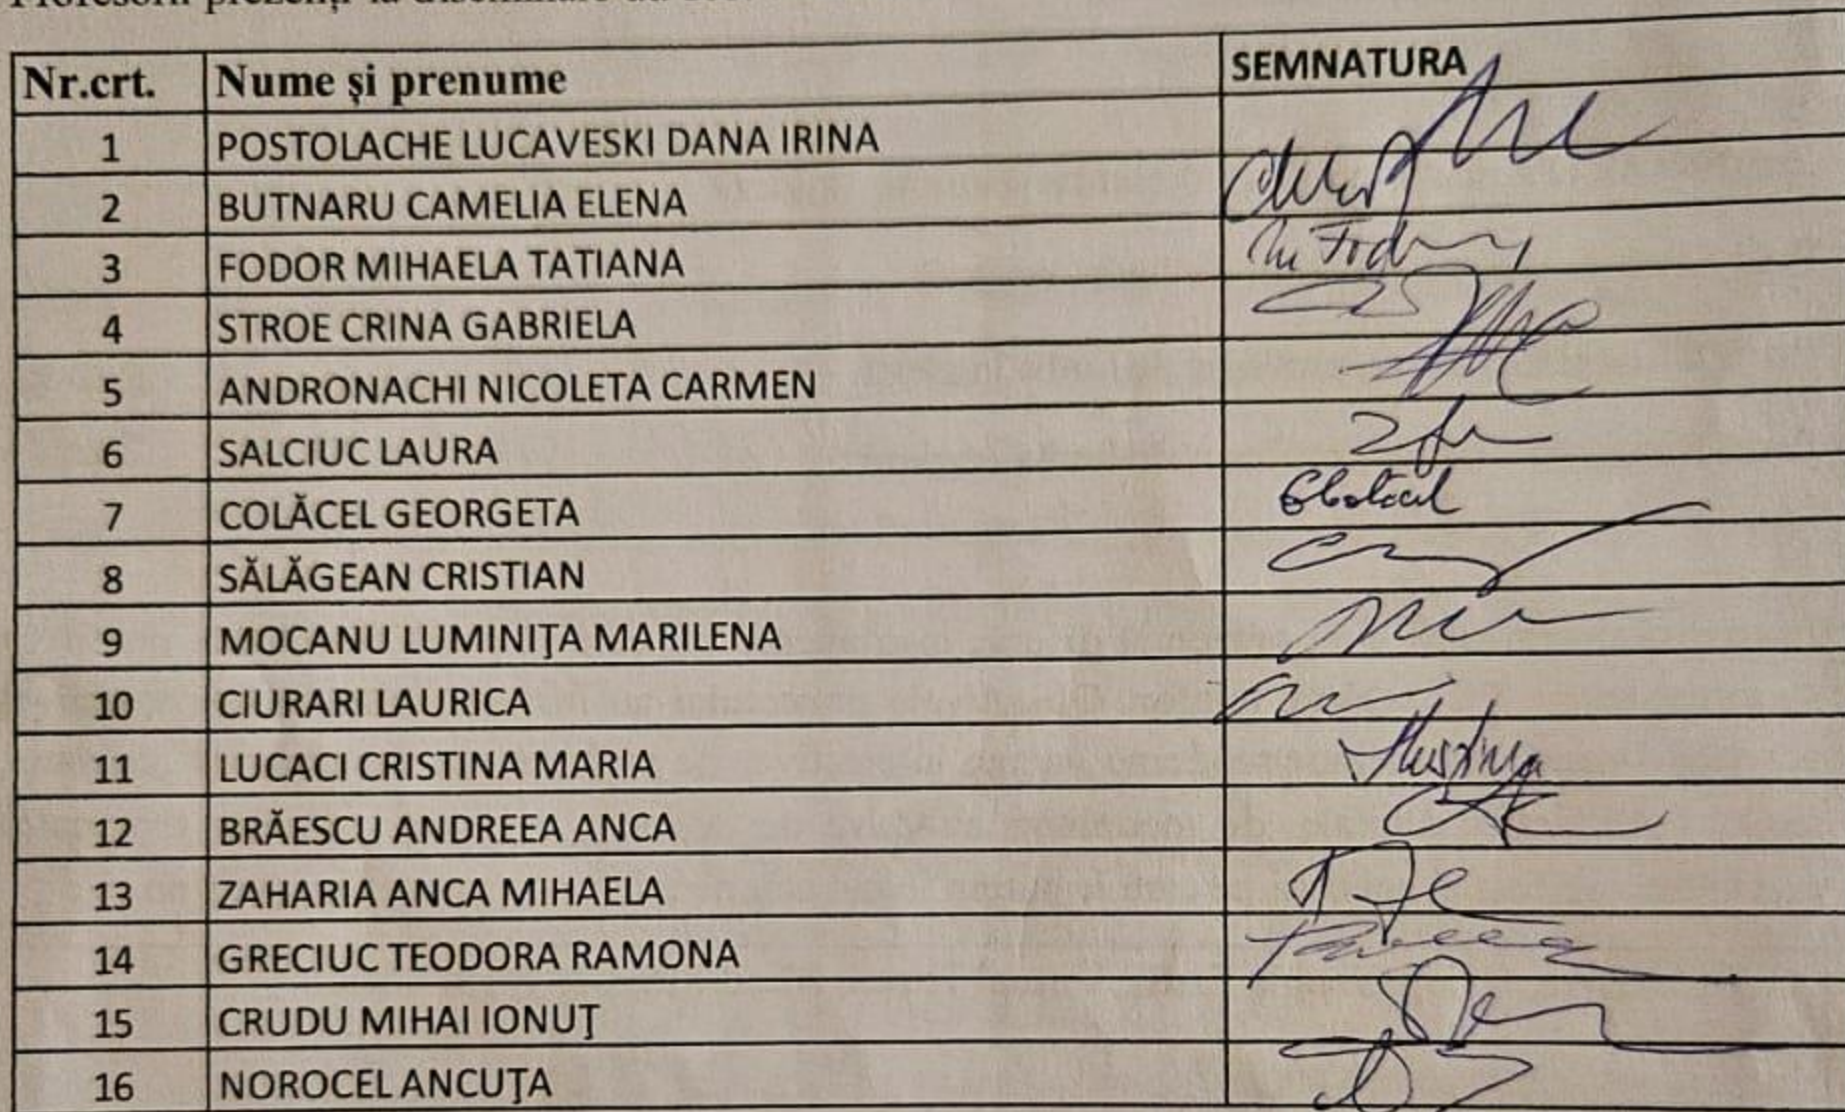 Nr.crt. Nume și prenume SEMNATURA
1 POSTOLACHE LUCAVESKI DANA IRINA
2 BUTNARU CAMELIA ELENA
3 FODOR MIHAELA TATIANA
4 STROE CRINA GABRIELA
5 ANDRONACHI NICOLETA CARMEN
6 SALCIUC LAURA
7 COLĂCEL GEORGETA
8 SĂLĂGEAN CRISTIAN
9 MOCANU LUMINIŢA MARILENA
10 CIURARI LAURICA
11 LUCACI CRISTINA MARIA
12 BRĂESCU ANDREEA ANCA
13 ZAHARIA ANCA MIHAELA
14 GRECIUC TEODORA RAMONA
15 CRUDU MIHAI IONUŢ
16 NOROCEL ANCUŢA